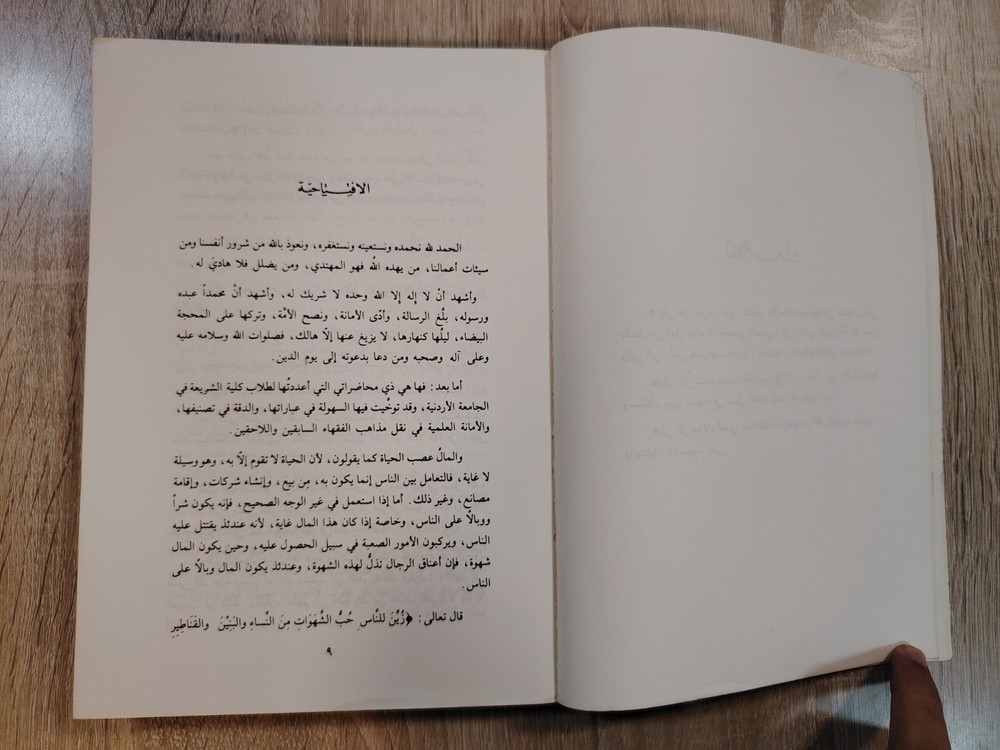 الافتتاحية
الحمد لله نحمده ونستعينه ونستغفره، ونعوذ بالله من شرور أنفسنا ومن
سيئات أعمالنا، من يهده الله فهو المهتدي، ومن يضلل فلا هاديَ له.
وأشهد أنْ لا إله إلا الله وحده لا شريك له، وأشهد أنَّ محمداً عبده
ورسوله، بلَّغ الرسالة، وأدّى الأمانة، ونصح الأمَّة، وتركها على المحجة
البيضاء، ليلُها كنهارها، لا يزيغ عنها إلّا هالك، فصلوات الله وسلامه عليه
وعلى آله وصحبه ومن دعا بدعوته إلى يوم الدين.
أما بعد: فها هي ذي محاضراتي التي أعددتُها لطلاب كلية الشريعة في
الجامعة الأردنية، وقد توخَّيت فيها السهولة في عباراتها، والدقة في تصنيفها،
والأمانة العلمية في نقل مذاهب الفقهاء السابقين واللاحقين.
والمالُ عصب الحياة كما يقولون، لأن الحياة لا تقوم إلّا به، وهو وسيلة
لا غاية، فالتعامل بين الناس إنما يكون به، مِن بيع، وإنشاء شركات، وإقامة
مصانع، وغير ذلك. أما إذا استعمل في غير الوجه الصحيح، فإنه يكون شراً
ووبالًا على الناس، وخاصة إذا كان هذا المال غاية، لأنه عندئذ يقتتل عليه
الناس، ويركبون الأمور الصعبة في سبيل الحصول عليه، وحين يكون المال
شهوة، فإن أعناق الرجال تذلُّ لهذه الشهوة، وعندئذ يكون المال وبالًا على
الناس.
قال تعالى: ﴿زُيِّنَ للنَّاسِ حُبُّ الشَّهَوَاتِ مِنَ النَّساءِ والبَنِيْنَ والقَنَاطِيرِ
٩